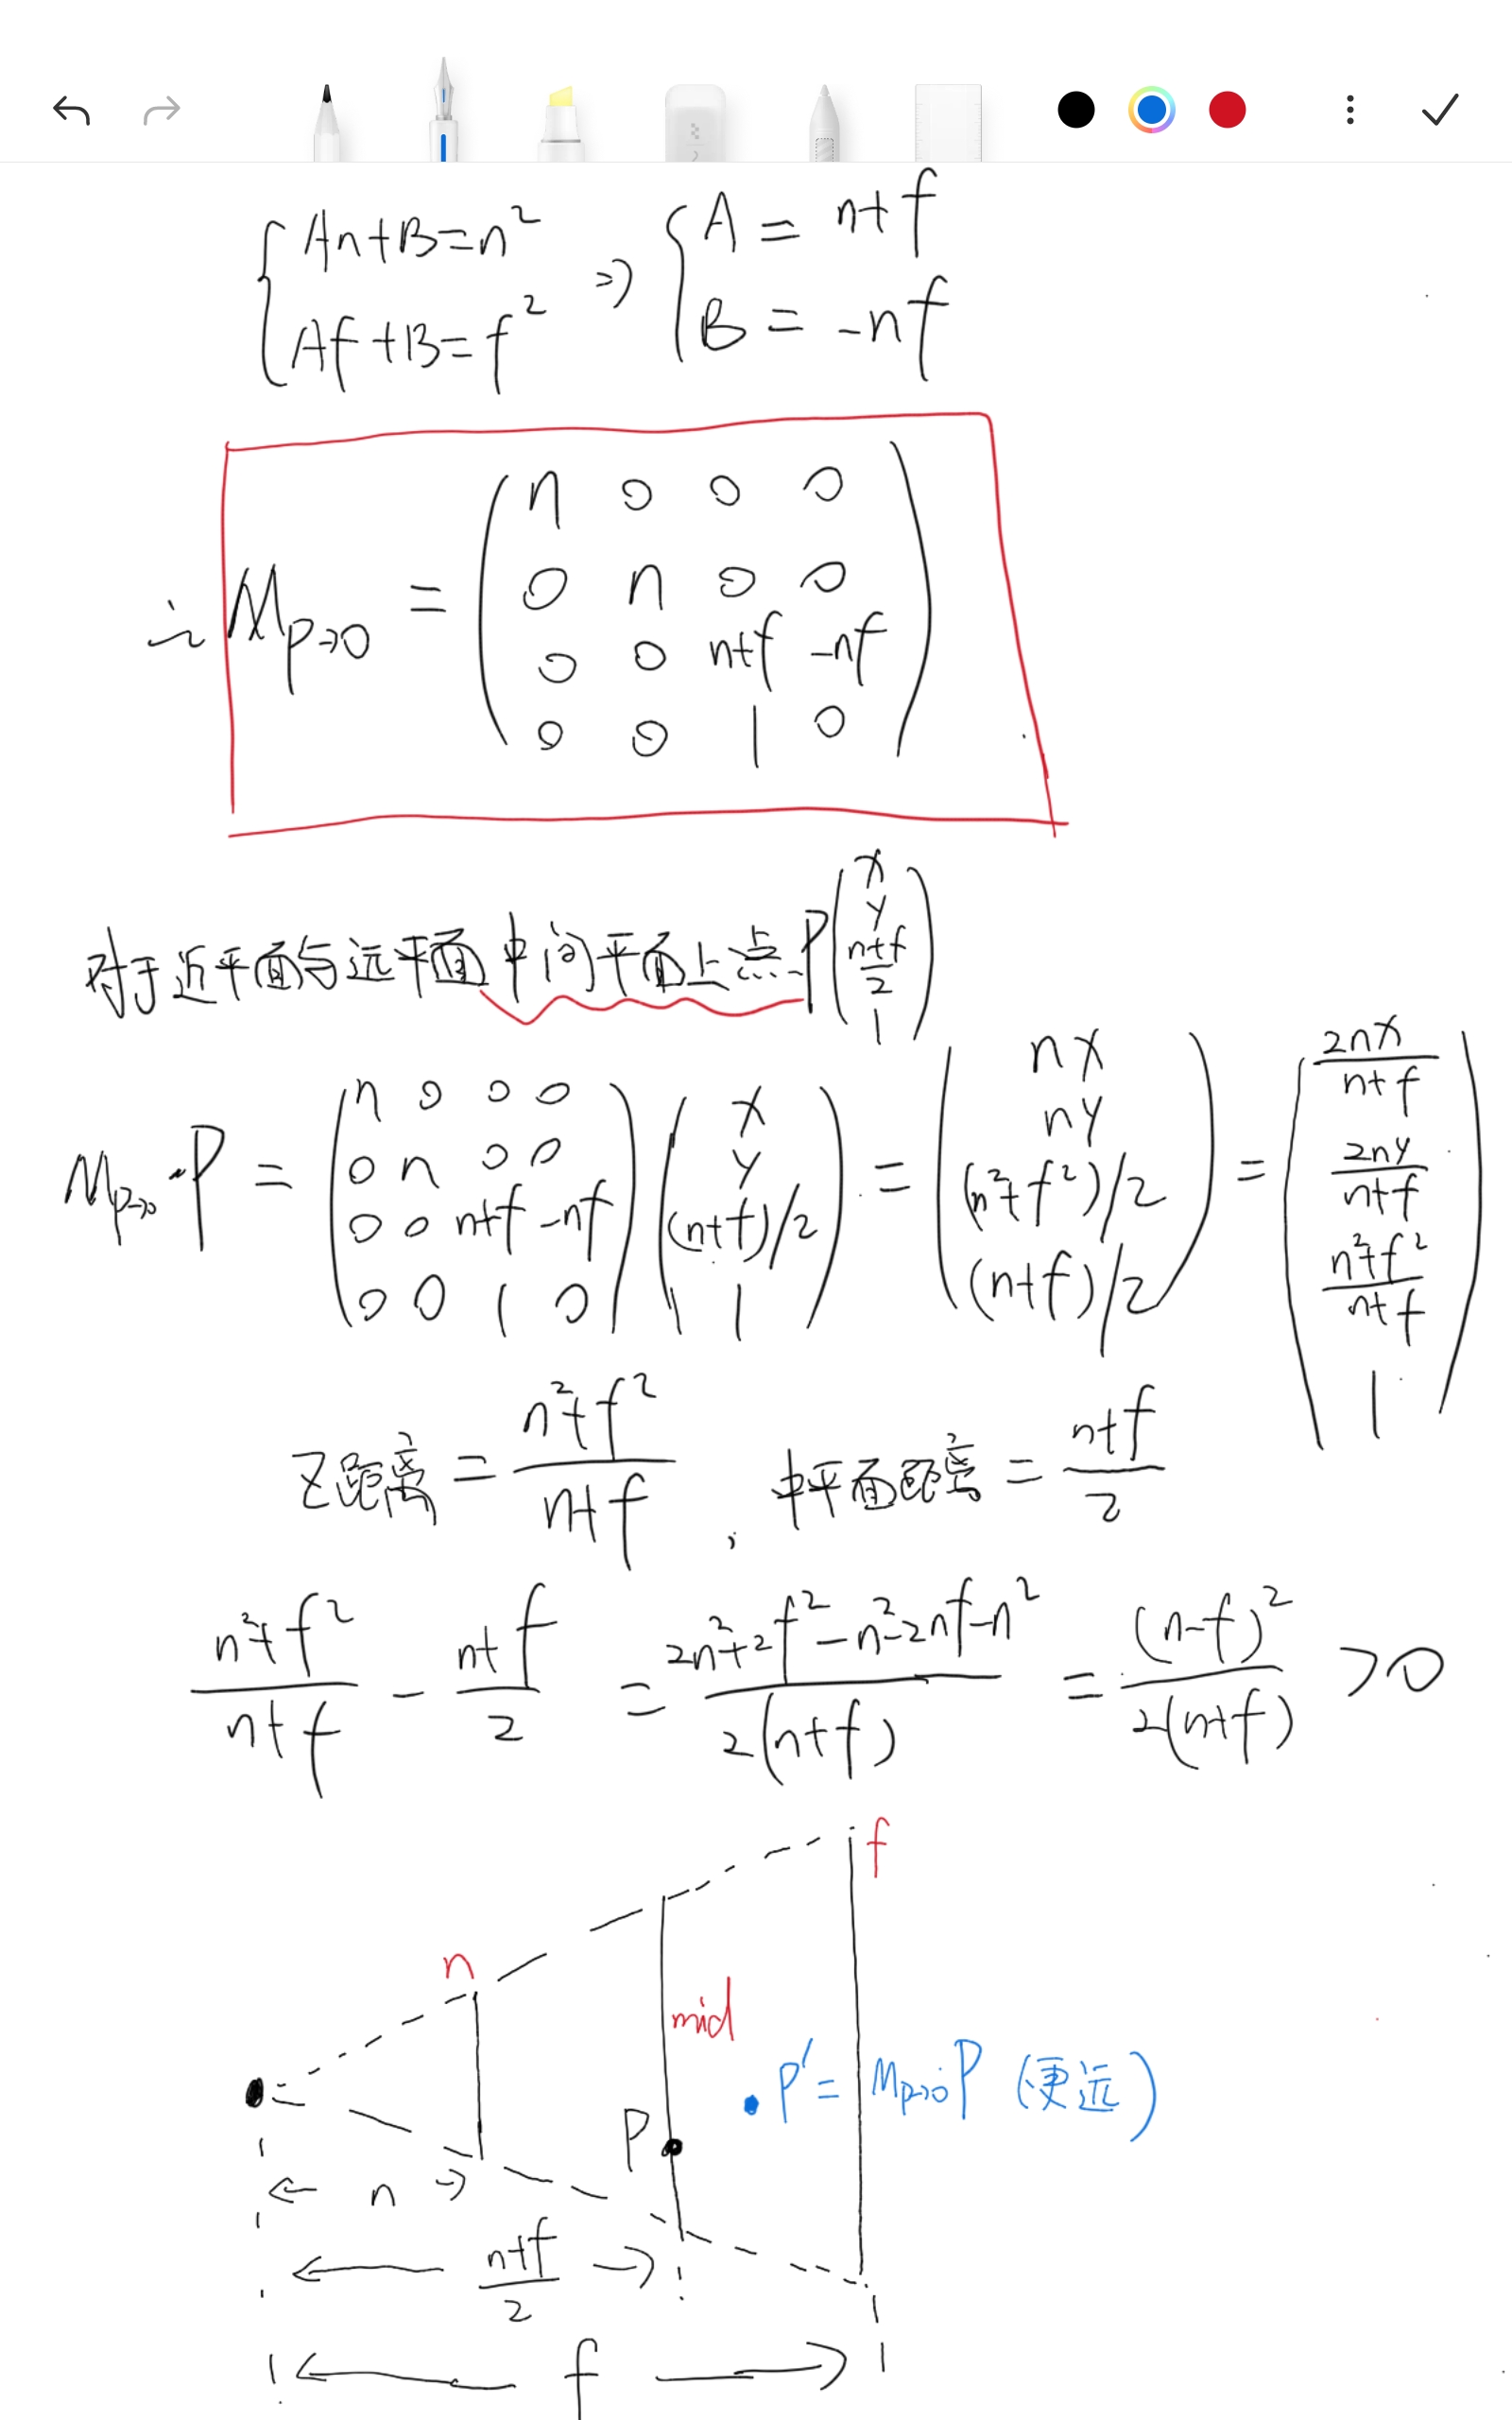 { An+B=n²  Af+B=f² ⇒ { A = n+f  B = -nf
∴ M_{p→o} = ( n 0 0 0
0 n 0 0
0 0 n+f -nf
0 0 1 0 )
对于近平面与远平面中间平面上点P ( x y (n+f)/2 1 )
M_{p→o}·P = ( n 0 0 0 ; 0 n 0 0 ; 0 0 n+f -nf ; 0 0 1 0 ) ( x ; y ; (n+f)/2 ; 1 ) = ( nx ; ny ; (n²+f²)/2 ; (n+f)/2 ) = ( 2nx/(n+f) ; 2ny/(n+f) ; (n²+f²)/(n+f) ; 1 )
Z距离 = (n²+f²)/(n+f) , 中平面距离 = (n+f)/2
(n²+f²)/(n+f) - (n+f)/2 = (2n²+2f²-n²-2nf-n²)/(2(n+f)) = (n-f)²/(2(n+f)) >0
f
n
mid
P′= M_{p→o}P (更远)
P
← n →
← (n+f)/2 →
← f →